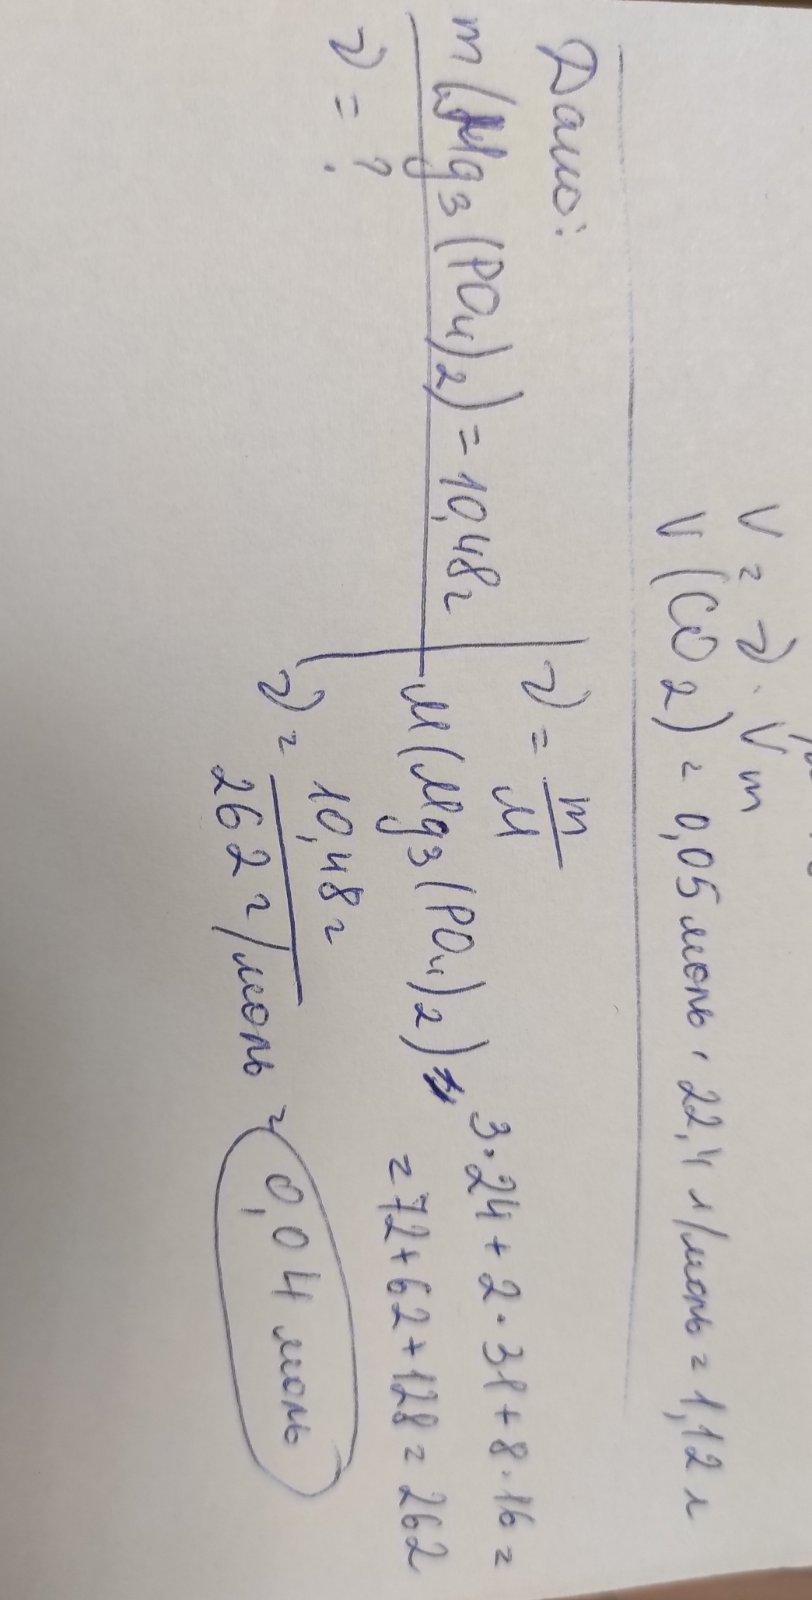 V = ν · Vm
V (CO2) = 0,05 моль · 22,4 л/моль = 1,12 л
Дано:
m (Mg3(PO4)2) = 10,48 г
ν = ?
ν = m/M
M (Mg3(PO4)2) = 3·24 + 2·31 + 8·16 =
= 72 + 62 + 128 = 262
ν = 10,48 г / 262 г/моль = 0,04 моль